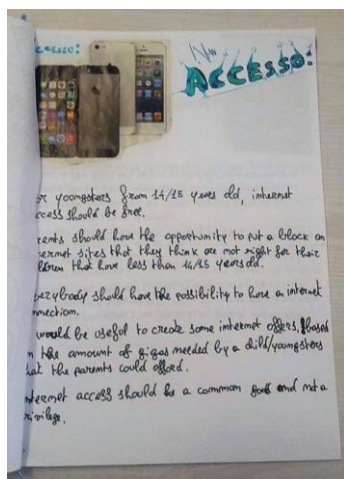 ccesso:
ACCESSO:
r youngsters from 14/15 years old, internet
ccess should be free.
rents should have the opportunity to put a block on
ternet sites that they think are not right for their
ldren that have less than 14/15 years old.
verybody should have the possibility to have a internet
nnection.
would be useful to create some internet offers, based
n the amount of gigas needed by a child/youngsters
hat the parents could afford.
nternet access should be a common good and not a
rivilege.